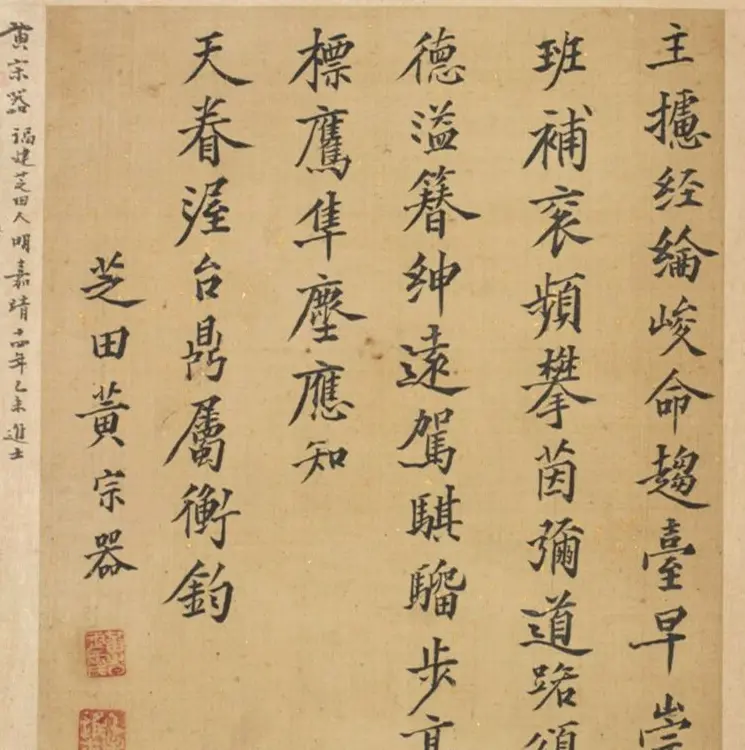 主攄经綸峻命趨臺早崇
班補衮頻攀茵彌道路頌
德溢簪紳遠駕騏驑步高
標鷹隼塵應知
天眷渥台鼎屬衡鈞
芝田黄宗器
黄宗器 福建芝田人明嘉靖十四年乙未進士